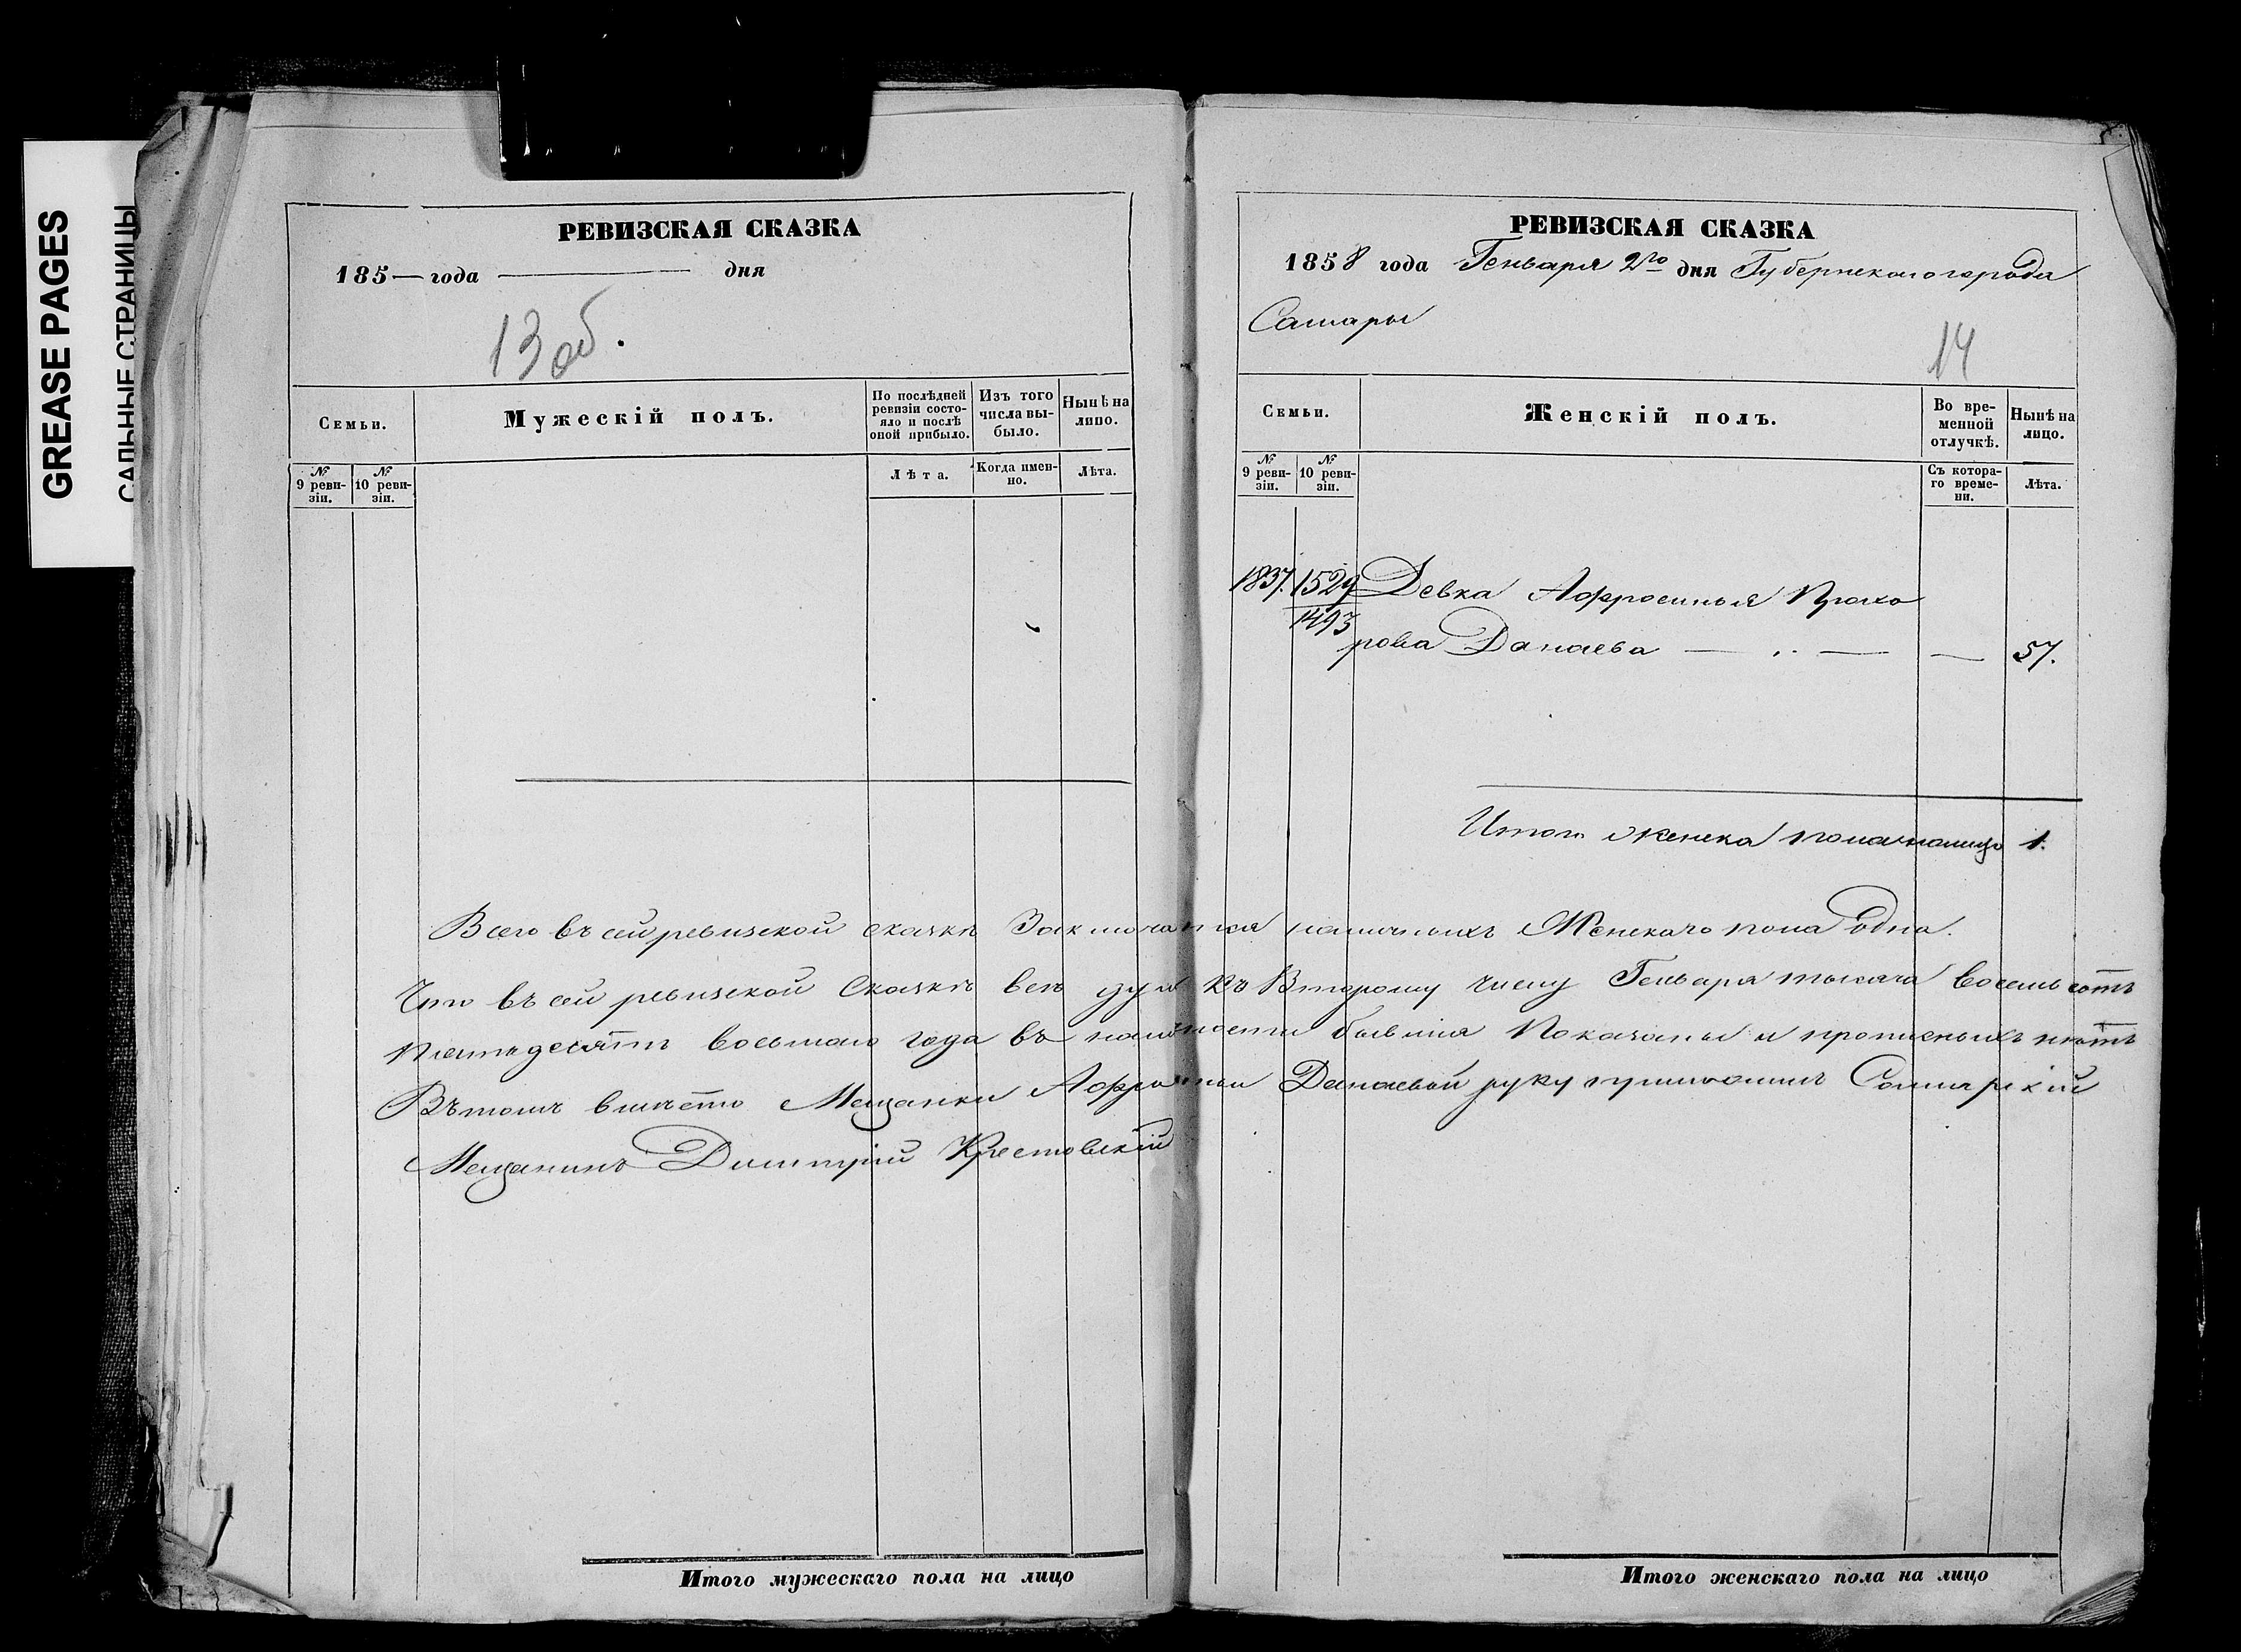 GREASE PAGES
САЛЬНЫЕ СТРАНИЦЫ
РЕВИЗСКАЯ СКАЗКА
185— года ——— дня
13 об.
Семьи.
Мужескій полъ.
По послѣдней ревизіи состояло и послѣ оной прибыло.
Изъ того числа выбыло.
Нынѣ на лицо.
№ 9 ревизіи.
№ 10 ревизіи.
Лѣта.
Когда именно.
Лѣта.
РЕВИЗСКАЯ СКАЗКА
1858 года Генваря 2го дня Губернскаго города
Самары
14
Семьи.
Женскій полъ.
Во временной отлучкѣ.
Нынѣ на лицо.
№ 9 ревизіи.
№ 10 ревизіи.
Съ котораго времени.
Лѣта.
1837. 1529 Девка Афросинья Прохо
1493
рова Данаева — .. — — 57.
Итого женска пола налицо 1.
Всего въ сей ревизской сказкѣ Заключается наличныхъ Женскаго пола Одна.
Что въ сей ревизской Сказкѣ всѣ души къ Второму числу Генваря тысяча восемьсотъ
пятьдесятъ восьмаго года въ наличности бывшія Показаны и прописныхъ нѣтъ
Въ томъ вмѣсто Мещанки Данаевой руку приложилъ Самарскій
Мещанинъ Димитрій Крестовскій
Итого мужескаго пола на лицо
Итого женскаго пола на лицо